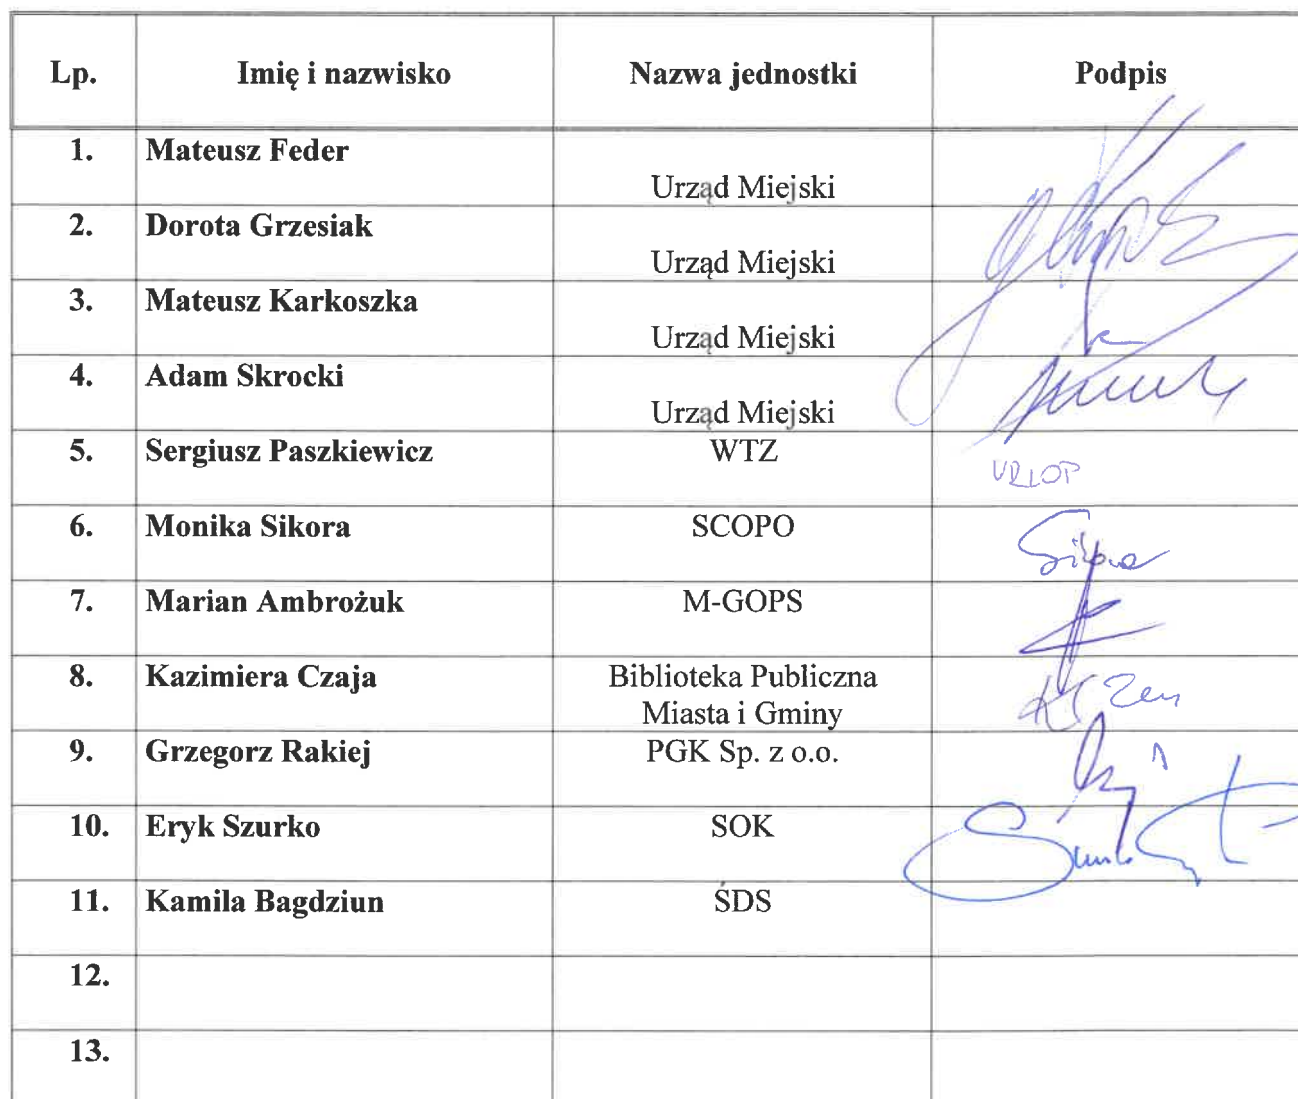 Lp. Imię i nazwisko Nazwa jednostki Podpis
1. Mateusz Feder
Urząd Miejski
2. Dorota Grzesiak
Urząd Miejski
3. Mateusz Karkoszka
Urząd Miejski
4. Adam Skrocki
Urząd Miejski
5. Sergiusz Paszkiewicz WTZ
URLOP
6. Monika Sikora SCOPO
Sikora
7. Marian Ambrożuk M-GOPS
8. Kazimiera Czaja Biblioteka Publiczna
Miasta i Gminy
9. Grzegorz Rakiej PGK Sp. z o.o.
10. Eryk Szurko SOK
11. Kamila Bagdziun ŚDS
12.
13.